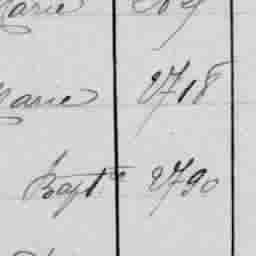 Marie
Marie 2718
Bapte 2790